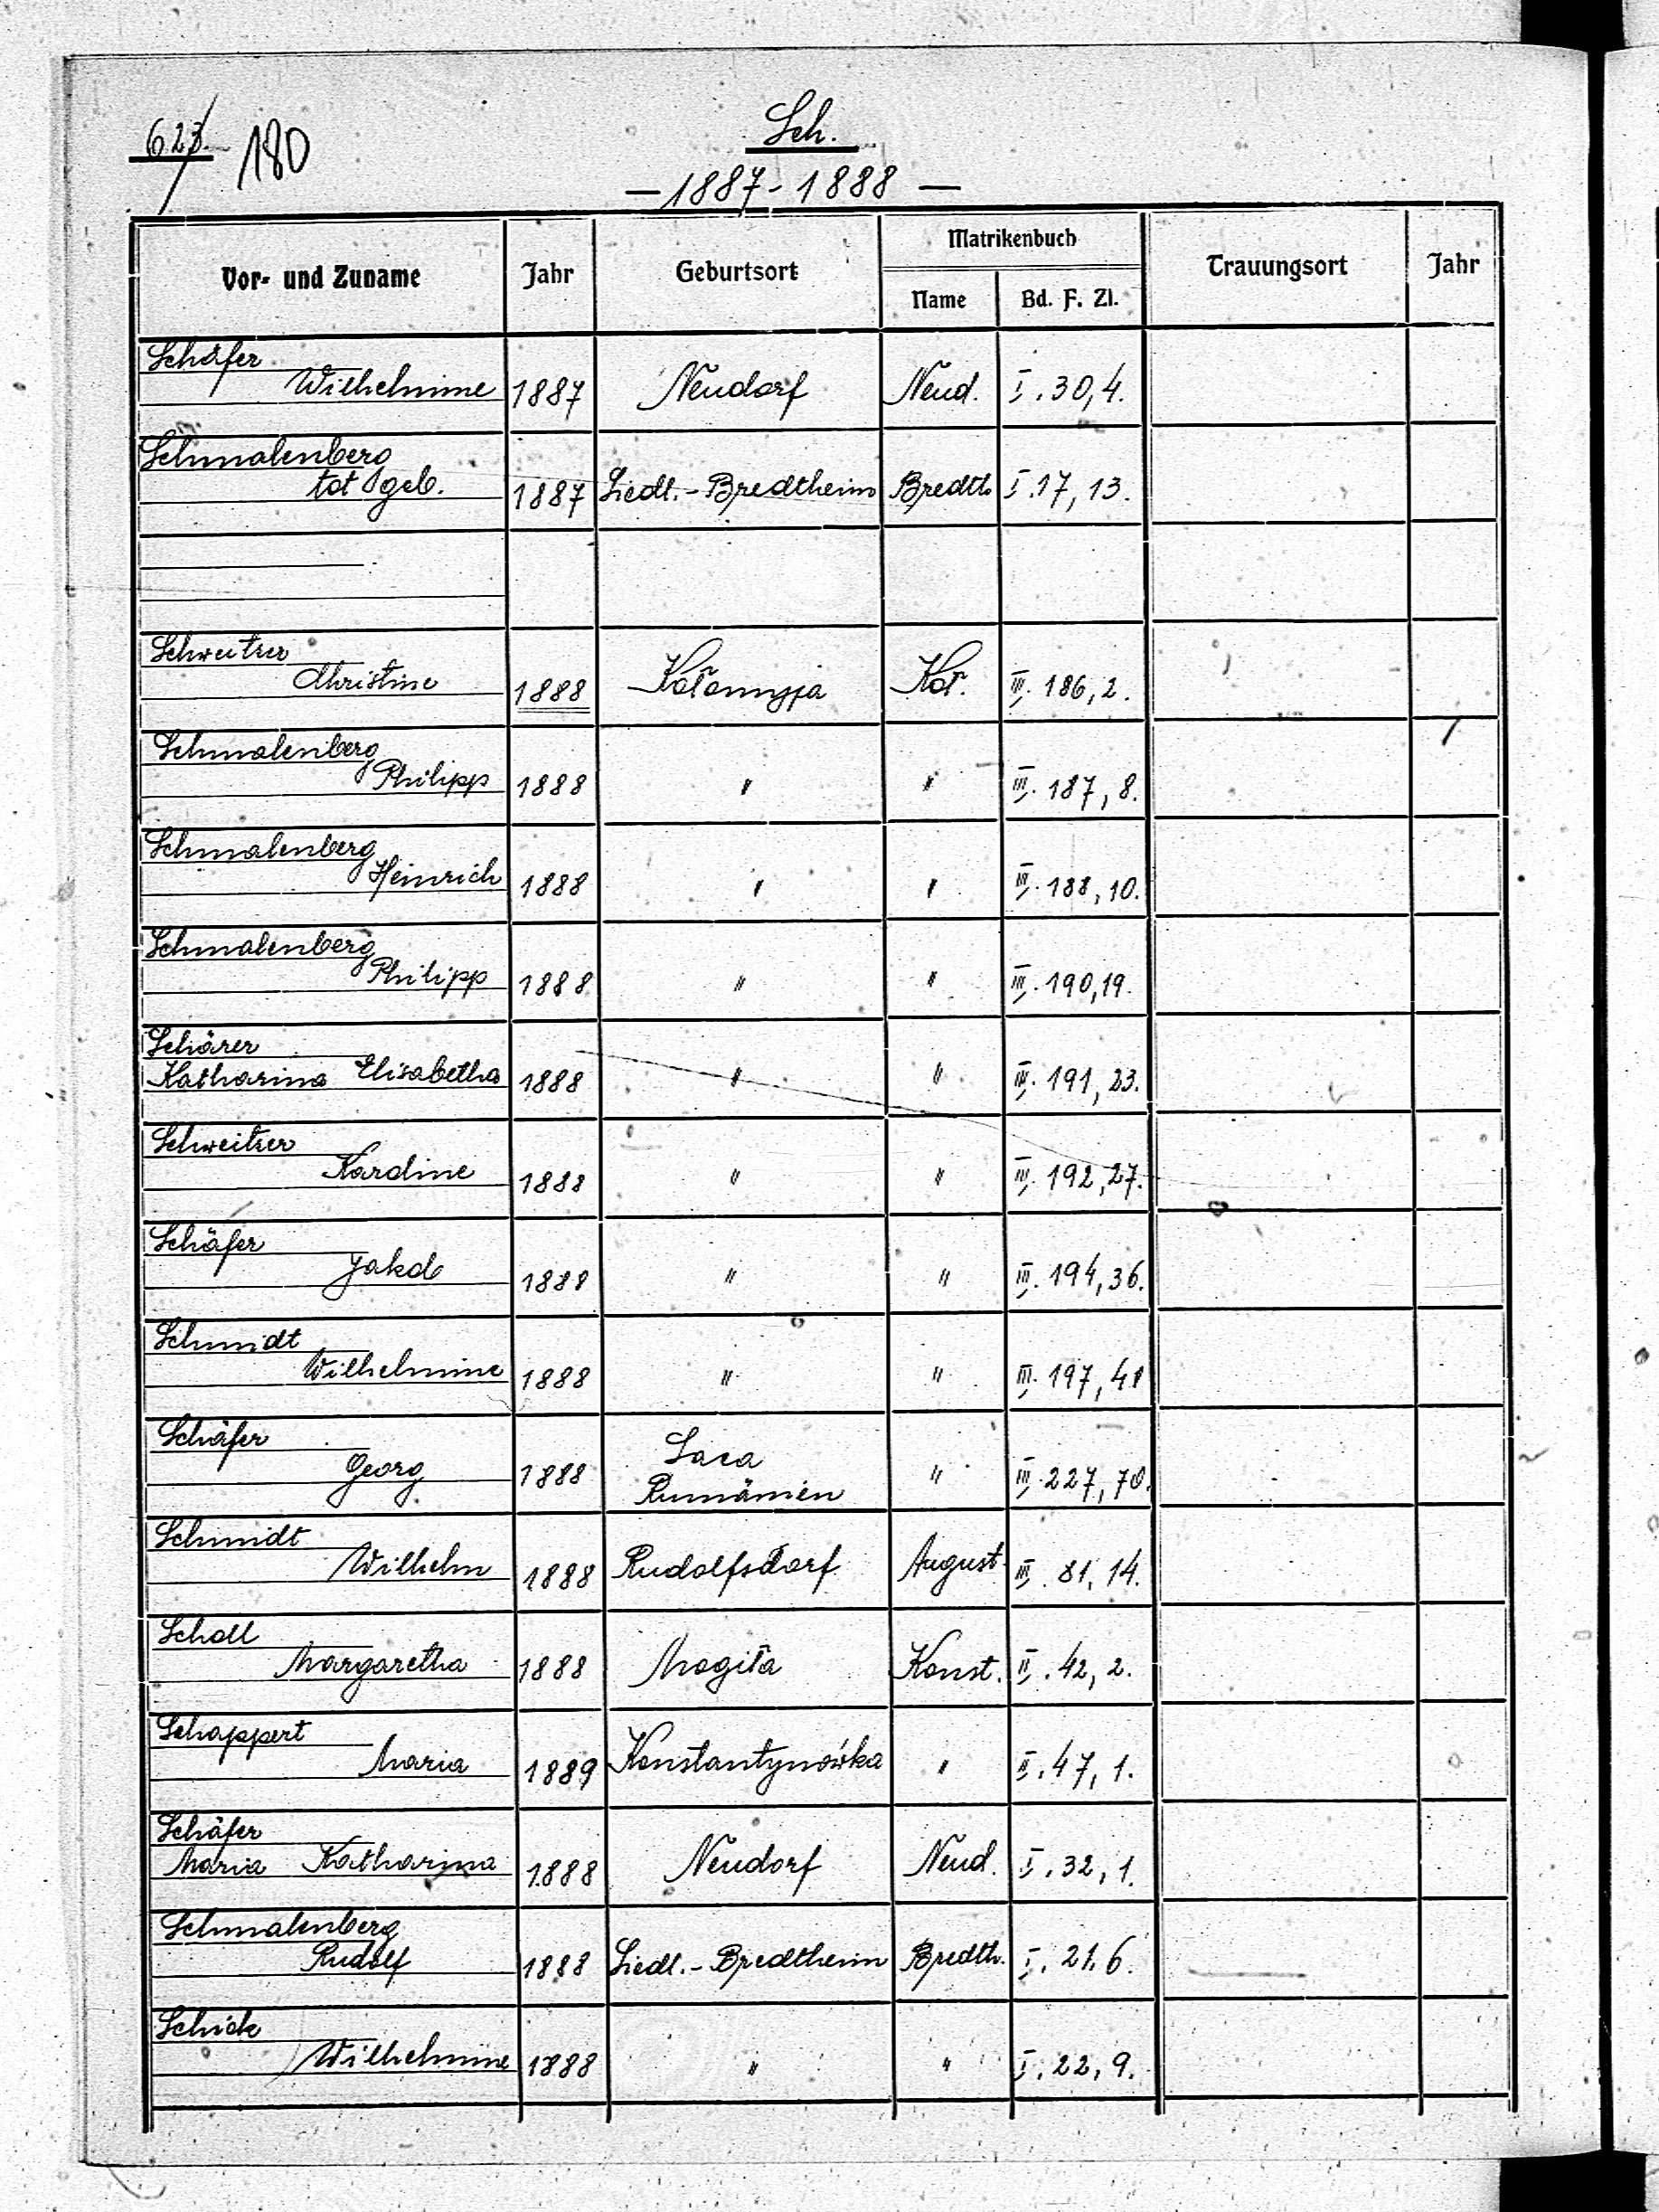 623. 180
Sch.
— 1887 - 1888 —
Matrikenbuch
Vor- und Zuname Jahr Geburtsort Trauungsort Jahr
Name Bd. F. Zl.
Schäfer
Wilhelmine 1887 Neudorf Neud. I. 30, 4.
Schmalenberg
tot geb. 1887 Siedl.-Bredtheim Bredth I. 17, 13.
Schweitzer
Christine 1888 Kołomyja Koł. III. 186, 2.
Schmalenberg
Philipp 1888 " " III. 187, 8.
Schmalenberg
Heinrich 1888 " " III. 188, 10.
Schmalenberg
Philipp 1888 " " III. 190, 19.
Schärer
Katharina Elisabetha 1888 " " III. 191, 23.
Schweitzer
Karoline 1888 " " III. 192, 27.
Schäfer
Jakob 1888 " " III. 194, 36.
Schmidt
Wilhelmine 1888 " " III. 197, 48
Schäfer Saca
Georg 1888 Rumänien " III. 227, 70.
Schmidt
Wilhelm 1888 Rudolfsdorf August. III. 81, 14.
Scholl
Margaretha 1888 Mogiła Konst. II. 42, 2.
Schappert
Maria 1889 Konstantynówka " II. 47, 1.
Schäfer
Maria Katharina 1888 Neudorf Neud. I. 32, 1.
Schmalenberg
Rudolf 1888 Siedl.-Bredtheim Bredth. I. 21. 6.
Schick
Wilhelmine 1888 " " I. 22, 9.